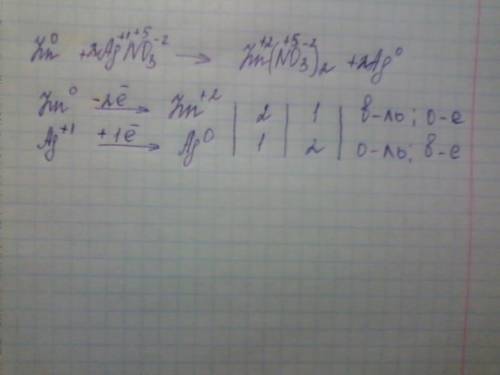 Zn⁰ + 2Ag⁺¹N⁺⁵O₃⁻² → Zn⁺²(N⁺⁵O₃⁻²)₂ + 2Ag⁰
Zn⁰ -2ē → Zn⁺² | 2 | 1 | в-ль; о-е
Ag⁺¹ +1ē → Ag⁰ | 1 | 2 | о-ль; в-е